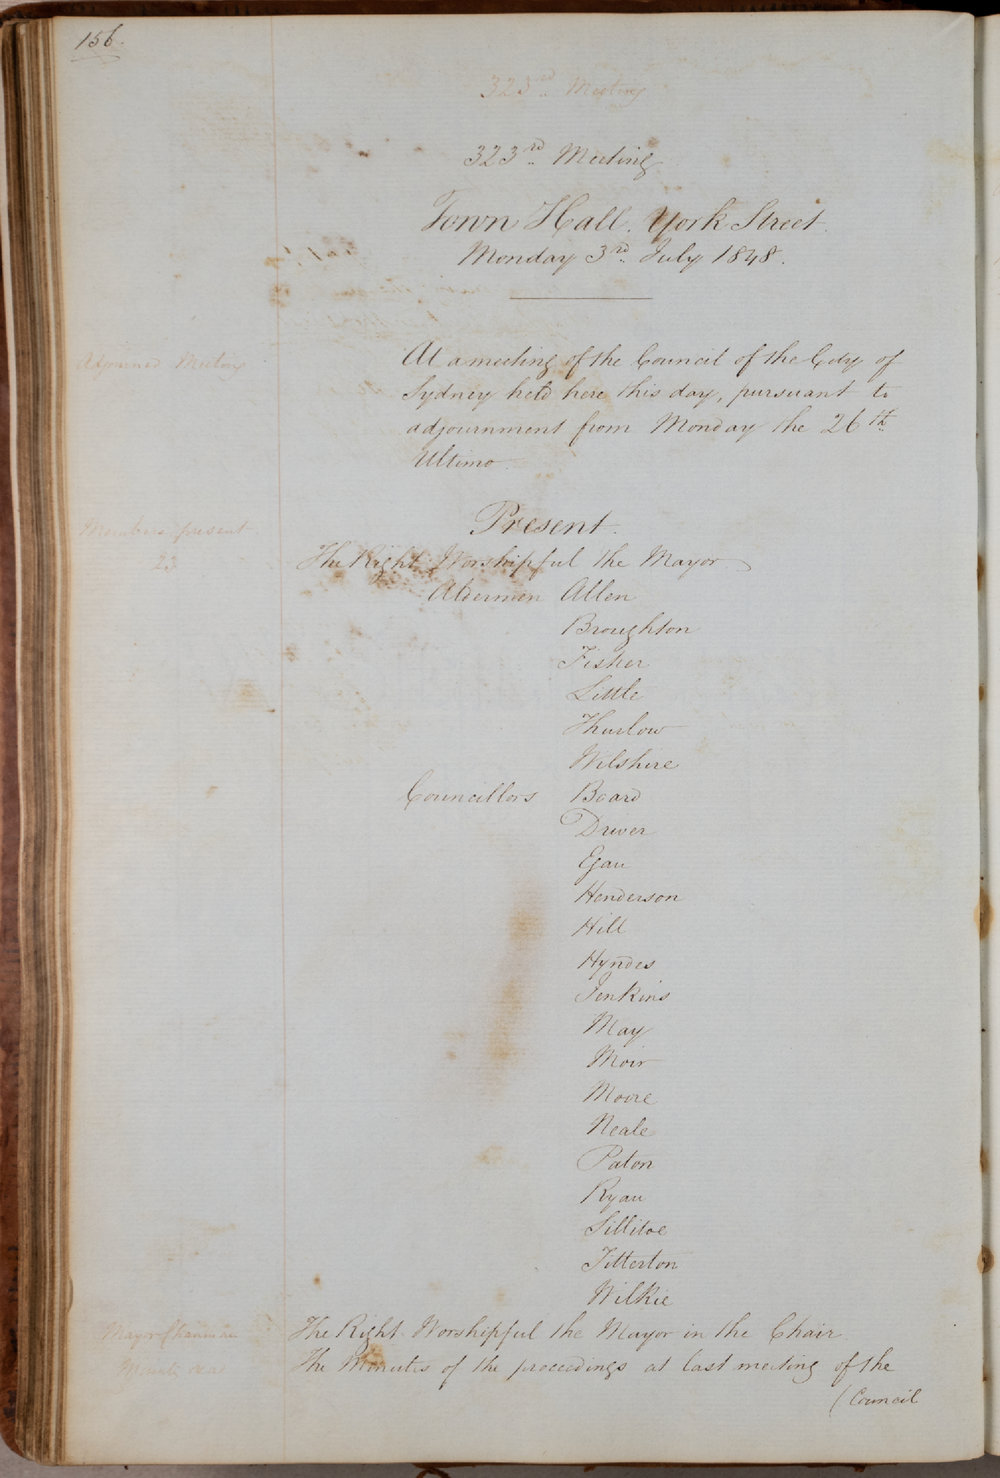 156.
323rd Meeting
323rd Meeting
Town Hall. York Street.
Monday 3rd July 1848.
Adjourned Meeting
At a meeting of the Council of the City of
Sydney held here this day, pursuant to
adjournment from Monday the 26th
Ultimo.
Present.
Members present
23
The Right Worshipful the Mayor
Aldermen Allen
Broughton
Fisher
Little
Thurlow
Wilshire
Councillors Beard
Driver
Egan
Henderson
Hill
Hyndes
Jenkins
May
Moir
Moore
Neale
Paton
Ryan
Sillitoe
Titterton
Wilkie
Mayor Chairman
The Right Worshipful the Mayor in the Chair
Minutes read
The Minutes of the proceedings at last meeting of the
(Council